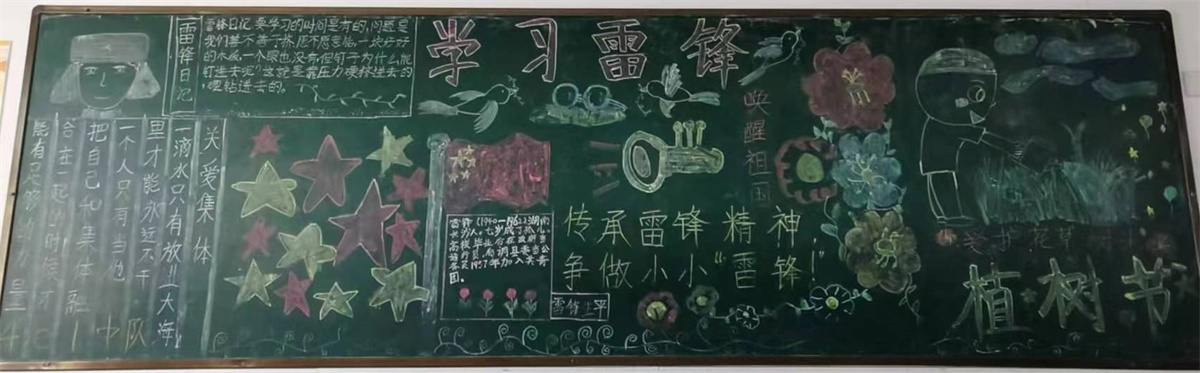 学习雷锋
雷锋日记
雷锋日记:要学习的时间是有的,问题是
我们善不善于挤,愿不愿意钻。一块好好
的木板,一个眼也没有,但钉子为什么能
钉进去呢?这就是靠压力硬挤进去的
,硬钻进去的。
关爱集体
一滴水只有放进大海
里才能永远不干
一个人只有当他
把自己和集体
合在一起的时候才
能有
中队
唤醒祖国
雷锋(1940-1962)湖南
长沙人。七岁成了孤儿。
高级毕业后在政府当
1957年加入共青
团。
雷锋生平
传承雷锋精神
争做小小“雷锋!”
植树节